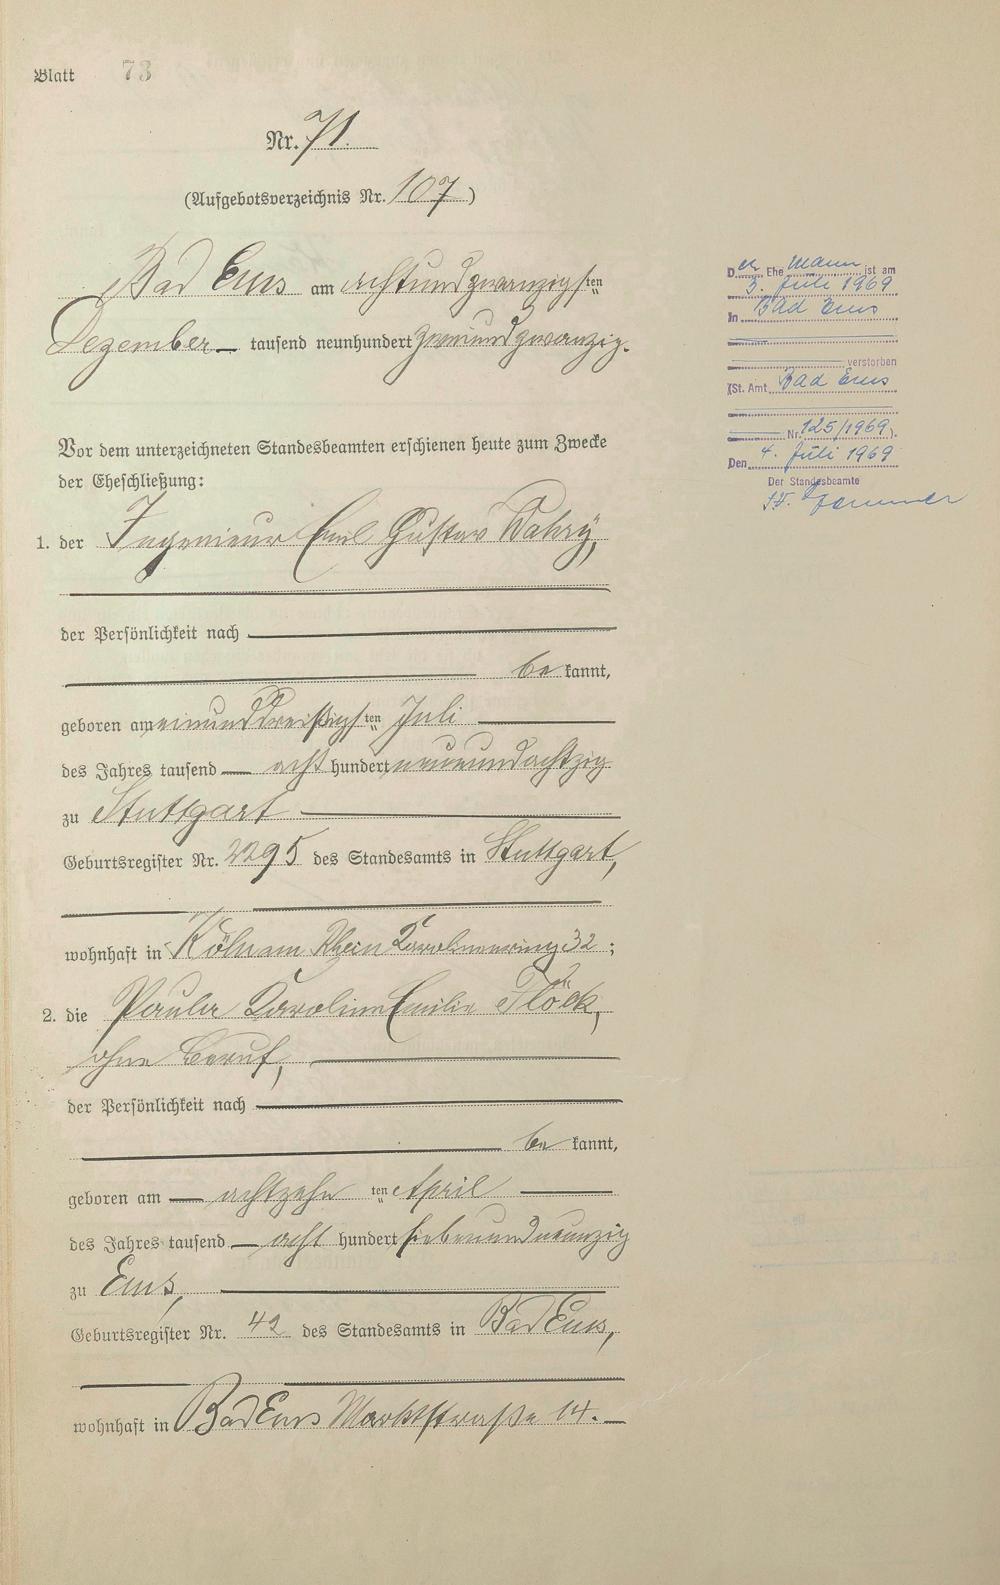 Blatt 73
Nr. 71.
(Aufgebotsverzeichnis Nr. 107)
Bad Ems am achtundzwanzigsten
Dezember tausend neunhundert zweiundzwanzig.
Vor dem unterzeichneten Standesbeamten erschienen heute zum Zwecke
der Eheschließung:
1. der Ingenieur Emil Gustav
der Persönlichkeit nach
be kannt,
geboren am einunddreißigsten Juli
des Jahres tausend acht hundert neunundachtzig
zu Stuttgart
Geburtsregister Nr. 2295 des Standesamts in Stuttgart,
wohnhaft in Köln am Rhein Karolinenring 32;
2. die Paula Karoline Emilie Flöck,
ohne Beruf,
der Persönlichkeit nach
be kannt,
geboren am achtzehn ten April
des Jahres tausend acht hundert siebenundneunzig
zu Ems,
Geburtsregister Nr. 42 des Standesamts in Bad Ems,
wohnhaft in Bad Ems Marktstraße 14.
Der Ehemann ist am
3. Juli 1969
in Bad Ems
verstorben
(St. Amt Bad Ems
Nr. 125/1969).
Den 4. Juli 1969
Der Standesbeamte